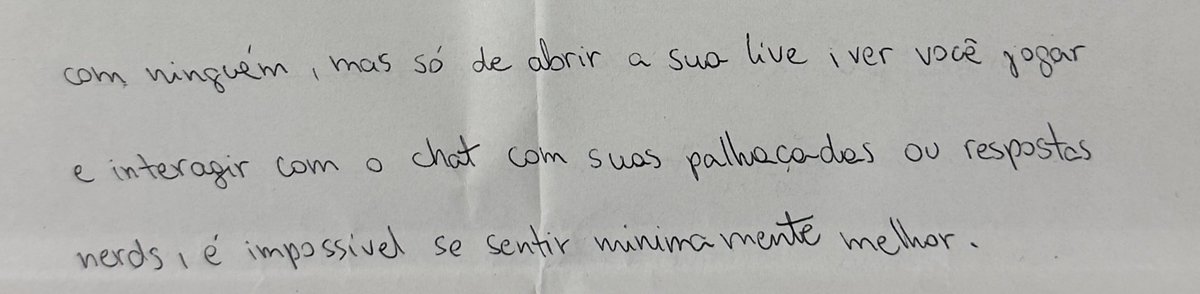 com ninguém, mas só de abrir a sua live, ver você jogar
e interagir com o chat com suas palhaçadas ou respostas
nerds, é impossível se sentir minimamente melhor.